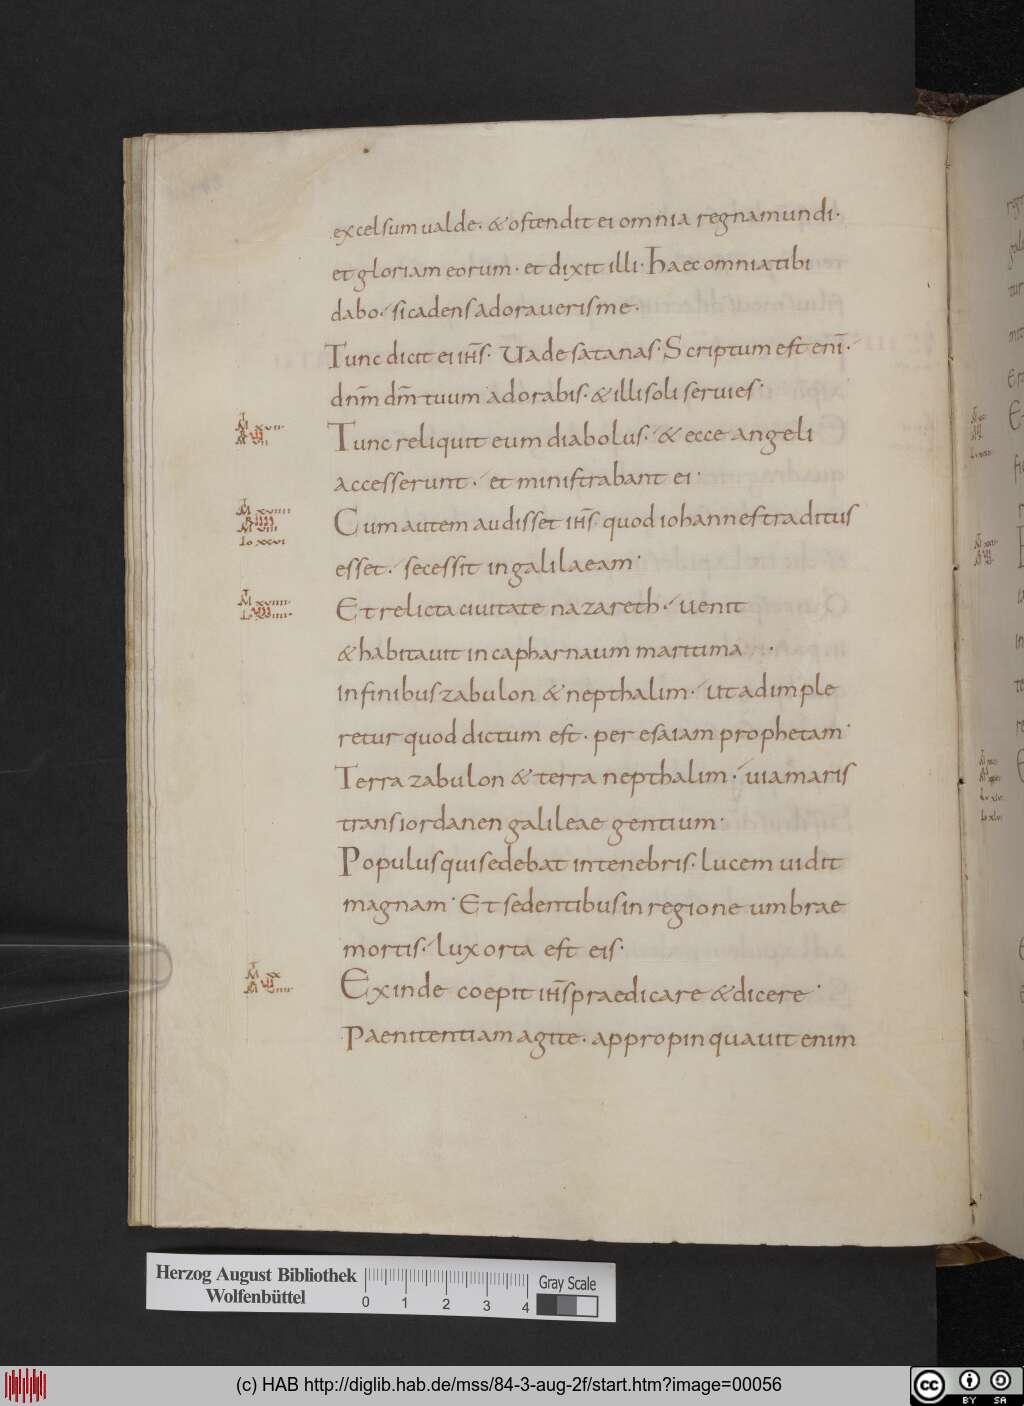 excelsum ualde. & ostendit ei omnia regna mundi.
et gloriam eorum. et dixit illi. Haec omnia tibi
dabo. si cadens adoraueris me.
Tunc dicit ei ih̅s. Uade satanas. Scriptum est eni̅.
dn̅m dm̅ tuum adorabis. & illi soli seruies.
Tunc reliquit eum diabolus. & ecce angeli
accesserunt. et ministrabant ei.
Cum autem audisset ih̅s. quod iohannes traditus
esset. secessit in galilaeam.
Et relicta ciuitate nazareth. uenit
& habitauit in capharnaum maritima.
in finibus zabulon & nepthalim. ut adimple
retur quod dictum est. per esaiam prophetam.
Terra zabulon & terra nepthalim. uia maris
trans iordanen galileae gentium.
Populus qui sedebat in tenebris. lucem uidit
magnam. Et sedentibus in regione umbrae
mortis. lux orta est eis.
Exinde coepit ih̅s praedicare & dicere.
Paenitentiam agite. appropinquauit enim
Herzog August Bibliothek
Wolfenbüttel
0 1 2 3 4
Gray Scale
(c) HAB http://diglib.hab.de/mss/84-3-aug-2f/start.htm?image=00056
cc BY SA